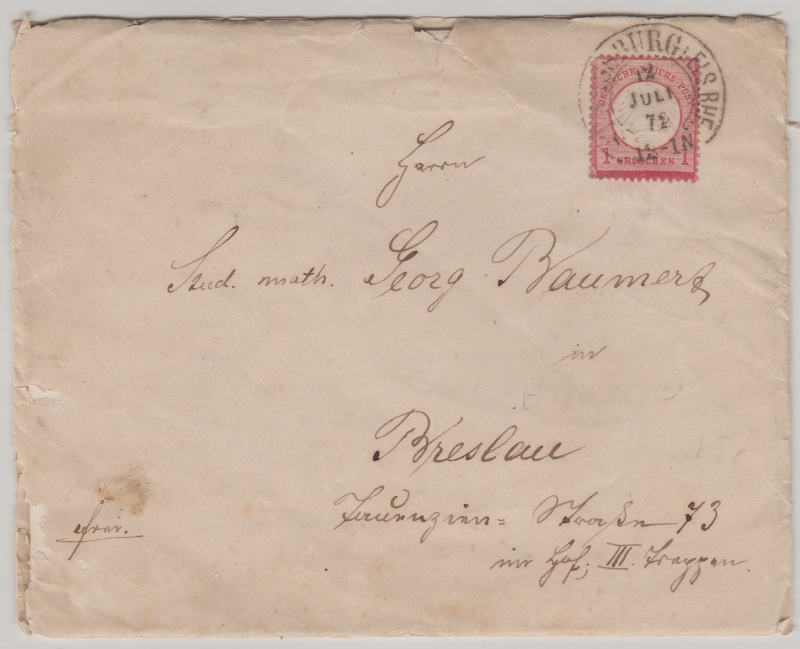 BURG i. ELS. BHF.
12
JULI
72
12-1N
DEUTSCHE REICHS-POST
1 GROSCHEN 1
Herrn
Stud. math. Georg Baumert
in
Breslau
Tauenzien= Straße 73
im Hof; III. Treppen.
frei.